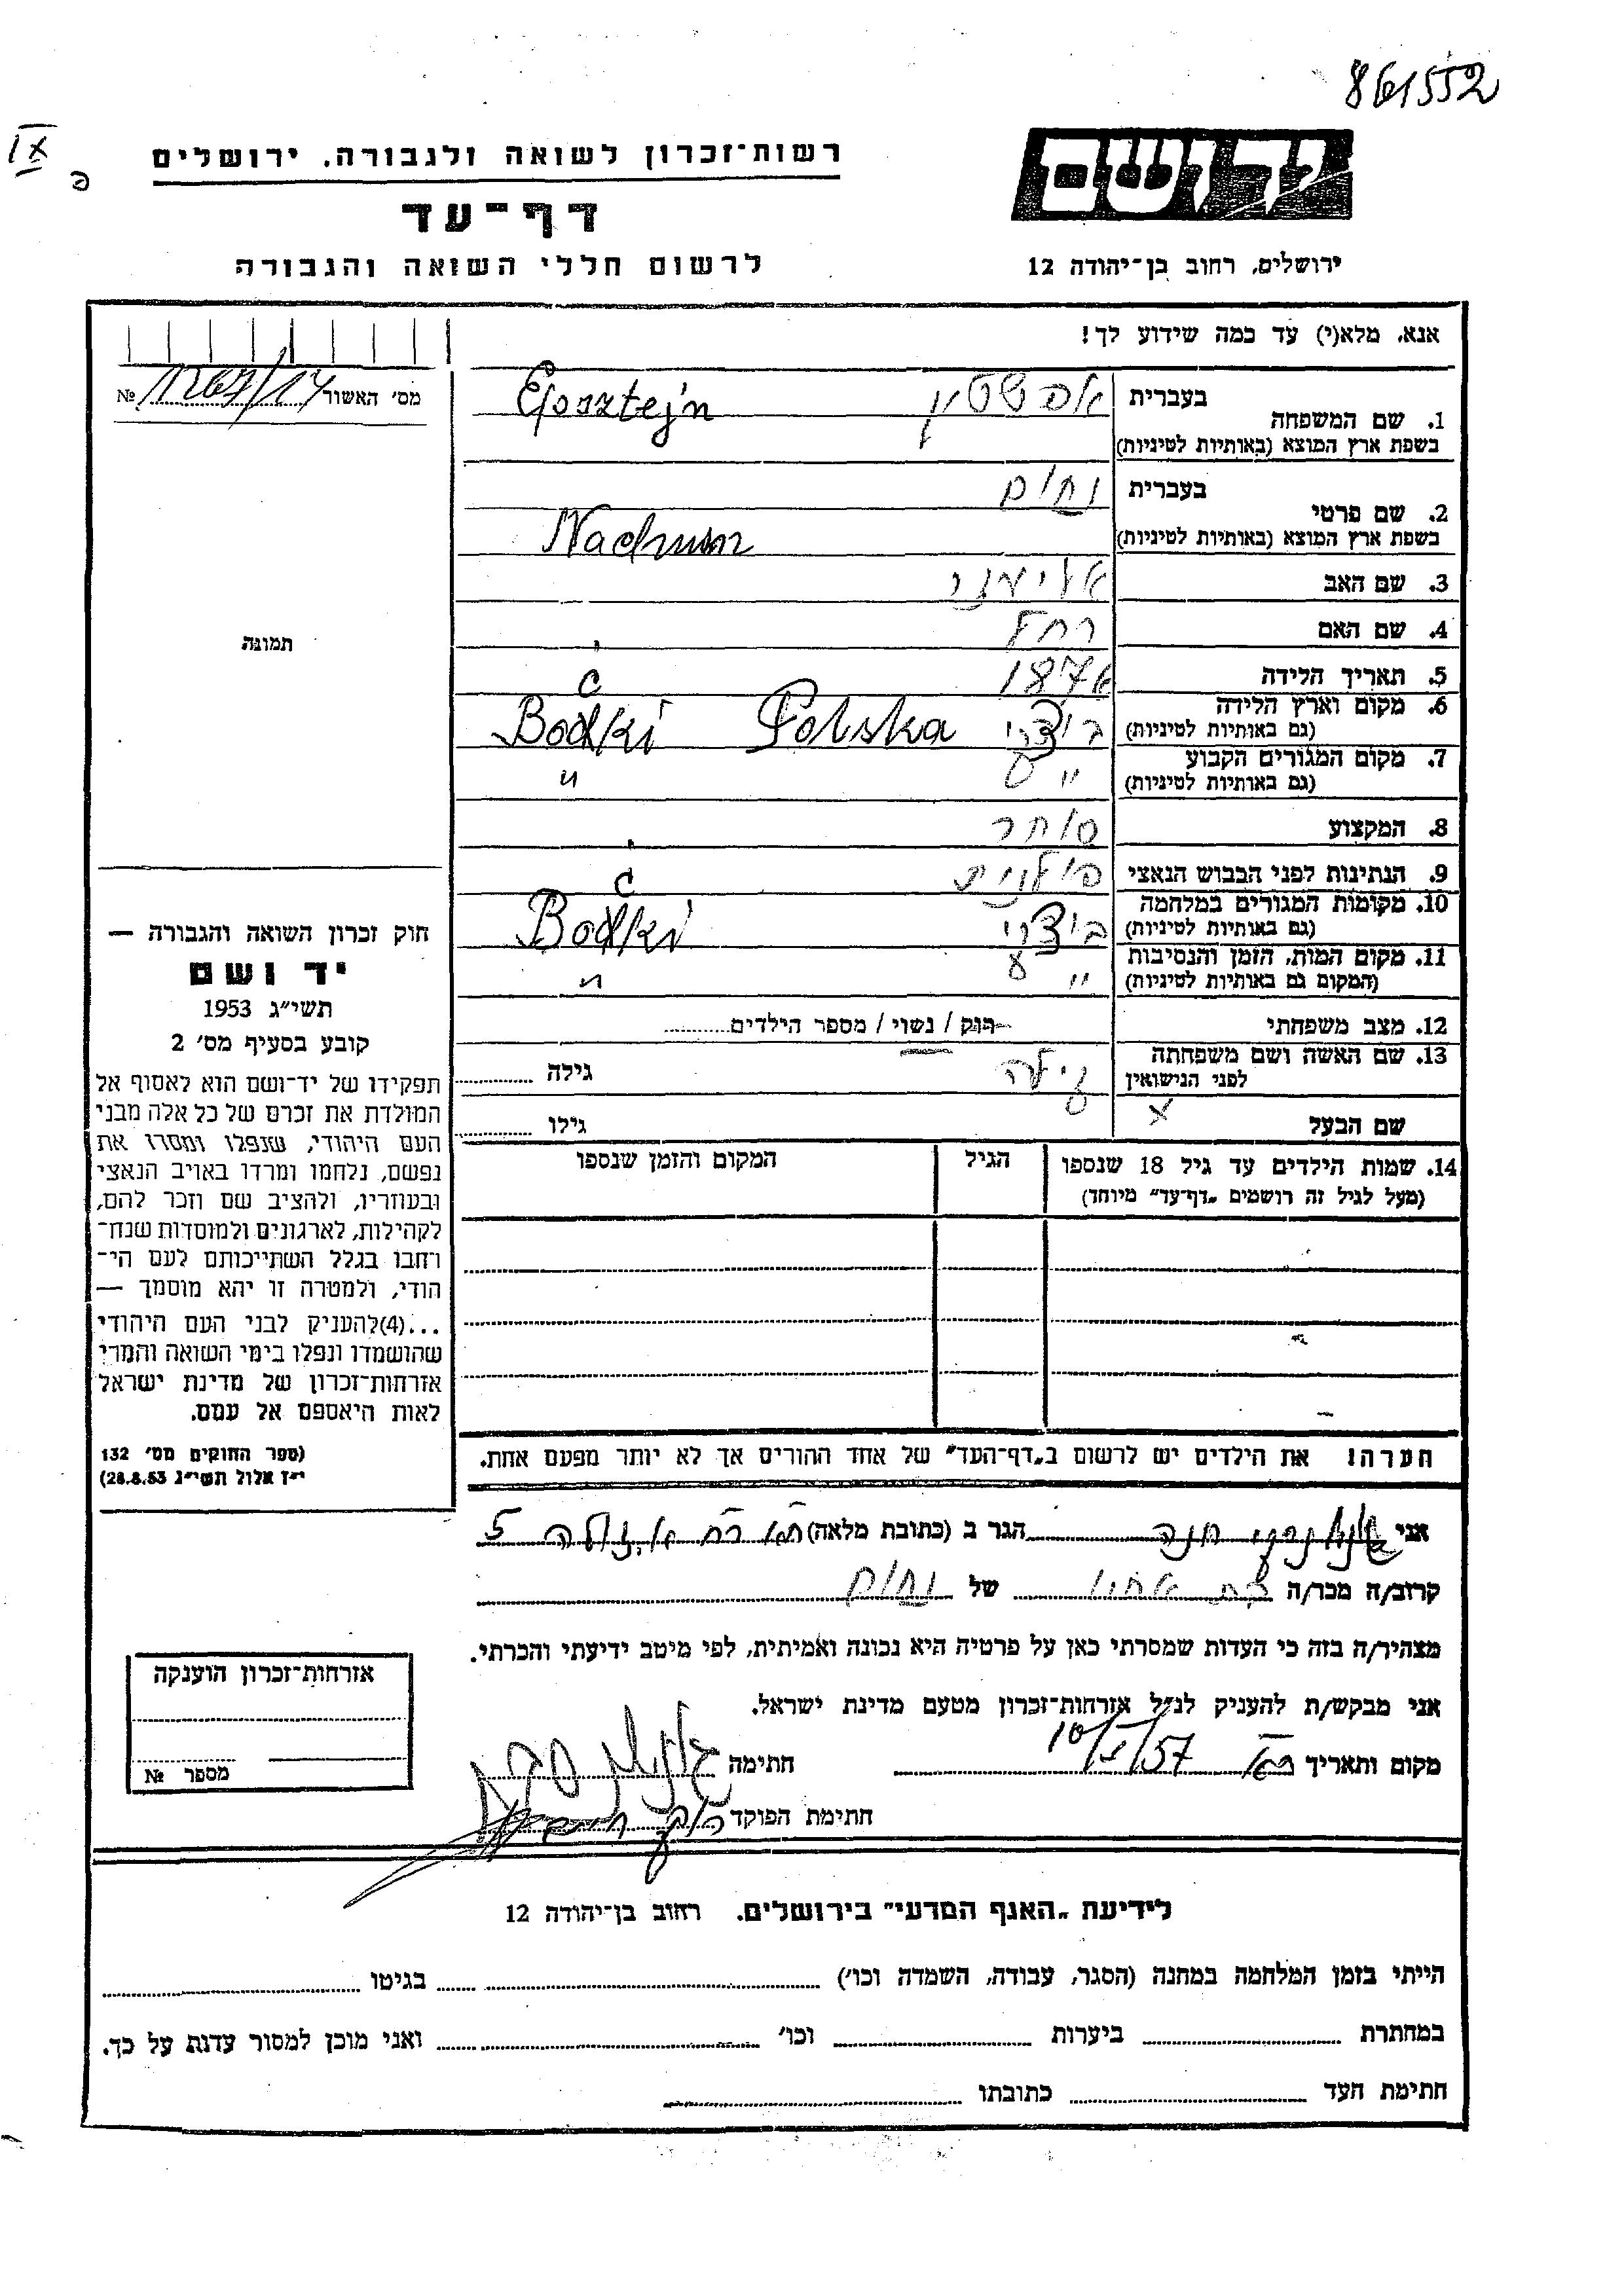 861552
IX
יד ושם
רשות־זכרון לשואה ולגבורה, ירושלים
פ
דף־עד
ירושלים, רחוב בן־יהודה 12
לרשום חללי השואה והגבורה
אנא, מלא(י) עד כמה שידוע לך!
מס׳ האשור №
1. שם המשפחה
בעברית אפשטין
בשפת ארץ המוצא (באותיות לטיניות) Epsztejn
2. שם פרטי
בעברית נחום
בשפת ארץ המוצא (באותיות לטיניות) Nachum
3. שם האב
4. שם האם רחל
5. תאריך הלידה 1874
6. מקום וארץ הלידה
(גם באותיות לטיניות) Boćki Polska
7. מקום המגורים הקבוע
(גם באותיות לטיניות) " "
8. המקצוע סוחר
9. הנתינות לפני הכבוש הנאצי פולנית
10. מקומות המגורים במלחמה
(גם באותיות לטיניות) Boćki
11. מקום המות, הזמן והנסיבות
(המקום גם באותיות לטיניות) " "
12. מצב משפחתי רוק / נשוי / מספר הילדים
13. שם האשה ושם משפחתה
לפני הנישואין גילה
שם הבעל גילו
14. שמות הילדים עד גיל 18 שנספו
(מעל לגיל זה רושמים „דף־עד״ מיוחד)
הגיל
המקום והזמן שנספו
תמונה
חוק זכרון השואה והגבורה —
יד ושם
תשי״ג 1953
קובע בסעיף מס׳ 2
תפקידו של יד־ושם הוא לאסוף אל
המולדת את זכרם של כל אלה מבני
העם היהודי, שנפלו ומסרו את
נפשם, נלחמו ומרדו באויב הנאצי
ובעוזריו, ולהציב שם וזכר להם,
לקהילות, לארגונים ולמוסדות שנח־
רחבו בגלל השתייכותם לעם הי־
הודי, ולמטרה זו יהא מוסמך —
...(4)להעניק לבני העם היהודי
שהושמדו ונפלו בימי השואה והמרי
אזרחות־זכרון של מדינת ישראל
לאות היאספם אל עמם.
(ספר החוקים מס׳ 132
י״ז אלול תשי״ג 28.8.53)
הערה! את הילדים יש לרשום ב„דף־העד״ של אחד ההורים אך לא יותר מפעם אחת.
אני חנה הגר ב (כתובת מלאה) 5
קרוב/ה מכר/ה בת אחיו של נחום
מצהיר/ה בזה כי העדות שמסרתי כאן על פרטיה היא נכונה ואמיתית, לפי מיטב ידיעתי והכרתי.
אני מבקש/ת להעניק לנ״ל אזרחות־זכרון מטעם מדינת ישראל.
מקום ותאריך 10/X/57 חתימה
חתימת הפוקד
אזרחות־זכרון הוענקה
מספר №
לידיעת „האגף המדעי״ בירושלים, רחוב בן־יהודה 12
הייתי בזמן המלחמה במחנה (הסגר, עבודה, השמדה וכו׳) בגיטו
במחתרת ביערות וכו׳ ואני מוכן למסור עדות על כך.
חתימת העד כתובתו